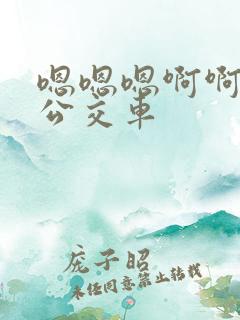 嗯嗯嗯啊啊
公交车
庞子昭
未经同意禁止转载